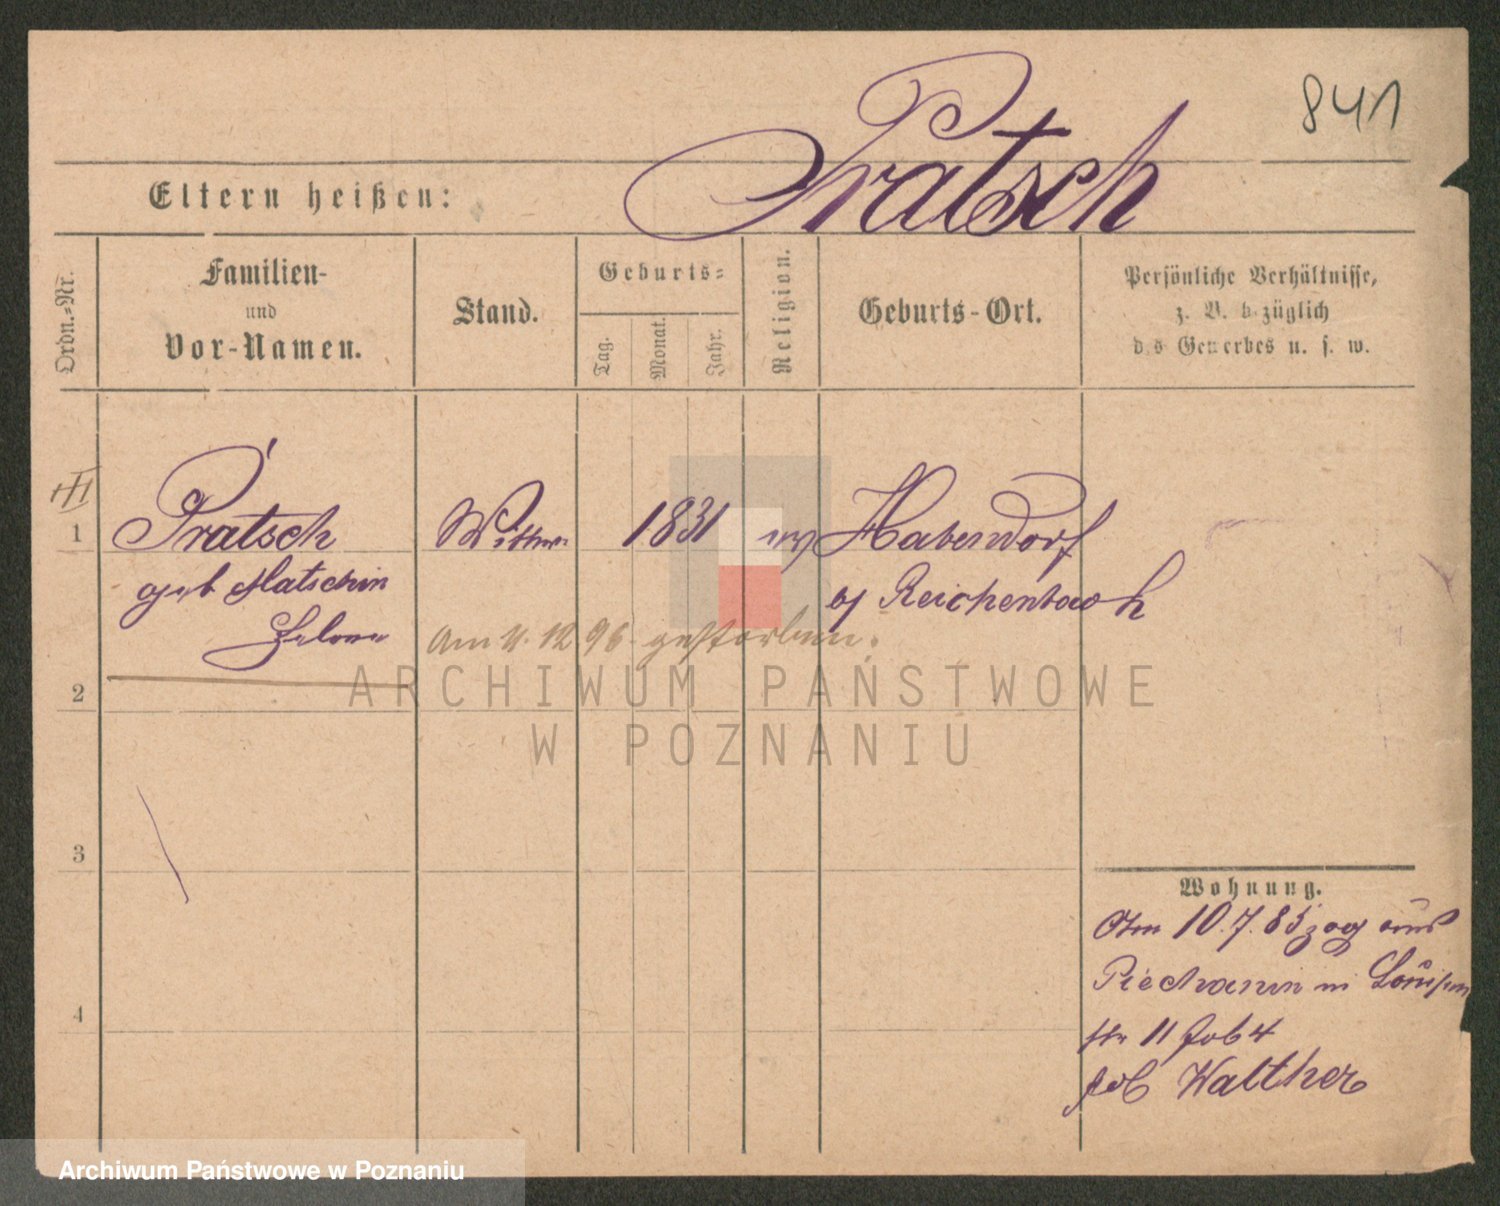 841
Pratsch
Eltern heißen:
Ordn.-Nr.
Familien-
und
Vor-Namen.
Stand.
Geburts-
Tag.
Monat.
Jahr.
Religion.
Geburts-Ort.
Persönliche Verhältnisse,
z. B. bezüglich
des Gewerbes u. s. w.
1
Pratsch
geb
Wittwe
1831
Habendorf
Reichenbach
Am 4. 12 96 gestorben.
2
ARCHIWUM PAŃSTWOWE
W POZNANIU
3
Wohnung.
Am 10.7.85 zog aus
Piechanin in Louisen
str 11
Walther
4
Archiwum Państwowe w Poznaniu